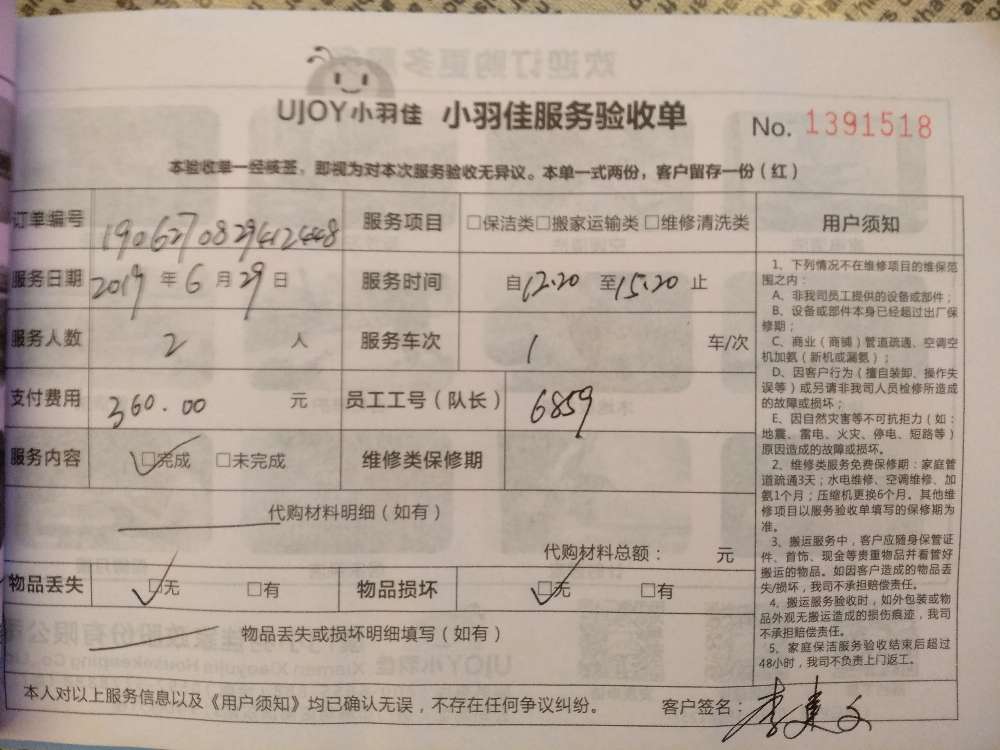 UJOY小羽佳 小羽佳服务验收单 No. 1391518
本验收单一经核签，即视为对本次服务验收无异议。本单一式两份，客户留存一份（红）
订单编号 190627082942448 服务项目 □保洁类□搬家运输类 □维修清洗类
服务日期 2019 年 6 月 29 日 服务时间 自12.20 至15.20 止
服务人数 2 人 服务车次 1 车/次
支付费用 360.00 元 员工工号（队长） 6859
服务内容 □完成 □未完成 维修类保修期
代购材料明细（如有）
代购材料总额： 元
物品丢失 □无 □有 物品损坏 □无 □有
物品丢失或损坏明细填写（如有）
本人对以上服务信息以及《用户须知》均已确认无误，不存在任何争议纠纷。 客户签名：
用户须知
1、下列情况不在维修项目的维保范
围之内：
A、非我司员工提供的设备或部件；
B、设备或部件本身已经超过出厂保
修期；
C、商业（商铺）管道疏通、空调空
机加氨（新机或漏氨）；
D、因客户行为（擅自装卸、操作失
误等）或另请非我司人员检修所造成
的故障或损坏；
E、因自然灾害等不可抗拒力（如：
地震、雷电、火灾、停电、短路等）
原因造成的故障或损坏。
2、维修类服务免费保修期：家庭管
道疏通3天；水电维修、空调维修、加
氨1个月；压缩机更换6个月。其他维
修项目以服务验收单填写的保修期为
准。
3、搬运服务中，客户应随身保管证
件、首饰、现金等贵重物品并看管好
搬运的物品。如因客户造成的物品丢
失/损坏，我司不承担赔偿责任。
4、搬运服务验收时，如外包装或物
品外观无搬运造成的损伤痕迹，我司
不承担赔偿责任。
5、家庭保洁服务验收结束后超过
48小时，我司不负责上门返工。